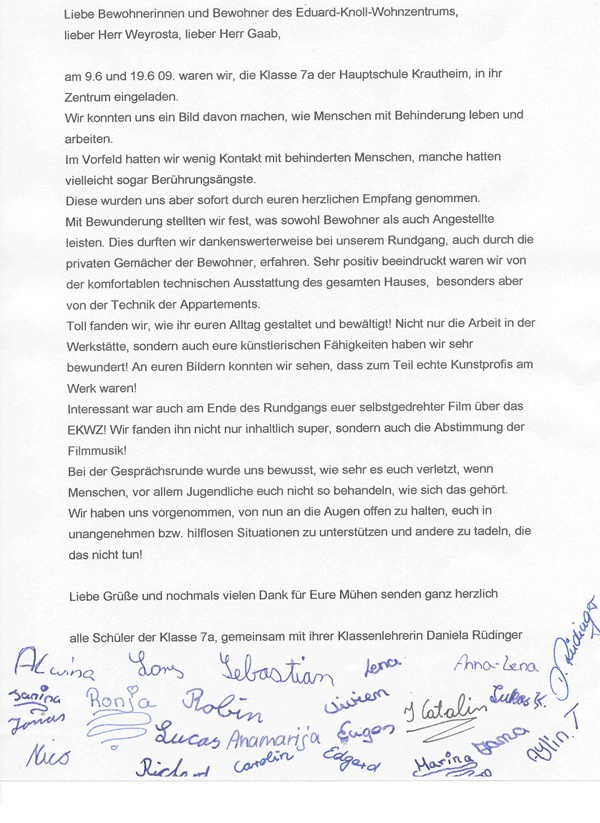 Liebe Bewohnerinnen und Bewohner des Eduard-Knoll-Wohnzentrums,
lieber Herr Weyrosta, lieber Herr Gaab,
am 9.6 und 19.6 09. waren wir, die Klasse 7a der Hauptschule Krautheim, in ihr
Zentrum eingeladen.
Wir konnten uns ein Bild davon machen, wie Menschen mit Behinderung leben und
arbeiten.
Im Vorfeld hatten wir wenig Kontakt mit behinderten Menschen, manche hatten
vielleicht sogar Berührungsängste.
Diese wurden uns aber sofort durch euren herzlichen Empfang genommen.
Mit Bewunderung stellten wir fest, was sowohl Bewohner als auch Angestellte
leisten. Dies durften wir dankenswerterweise bei unserem Rundgang, auch durch die
privaten Gemächer der Bewohner, erfahren. Sehr positiv beeindruckt waren wir von
der komfortablen technischen Ausstattung des gesamten Hauses, besonders aber
von der Technik der Appartements.
Toll fanden wir, wie ihr euren Alltag gestaltet und bewältigt! Nicht nur die Arbeit in der
Werkstätte, sondern auch eure künstlerischen Fähigkeiten haben wir sehr
bewundert! An euren Bildern konnten wir sehen, dass zum Teil echte Kunstprofis am
Werk waren!
Interessant war auch am Ende des Rundgangs euer selbstgedrehter Film über das
EKWZ! Wir fanden ihn nicht nur inhaltlich super, sondern auch die Abstimmung der
Filmmusik!
Bei der Gesprächsrunde wurde uns bewusst, wie sehr es euch verletzt, wenn
Menschen, vor allem Jugendliche euch nicht so behandeln, wie sich das gehört.
Wir haben uns vorgenommen, von nun an die Augen offen zu halten, euch in
unangenehmen bzw. hilflosen Situationen zu unterstützen und andere zu tadeln, die
das nicht tun!
Liebe Grüße und nochmals vielen Dank für Eure Mühen senden ganz herzlich
alle Schüler der Klasse 7a, gemeinsam mit ihrer Klassenlehrerin Daniela Rüdinger
D. Rüdinger
Alwina Sebastian Lena Anna-Lena
Janina Ronja Robin Vivien Catalin Lukas K.
Jonas Lucas Anamarija Eugen Jana Aylin. T
Nico Richard Carolin Edgard Marina